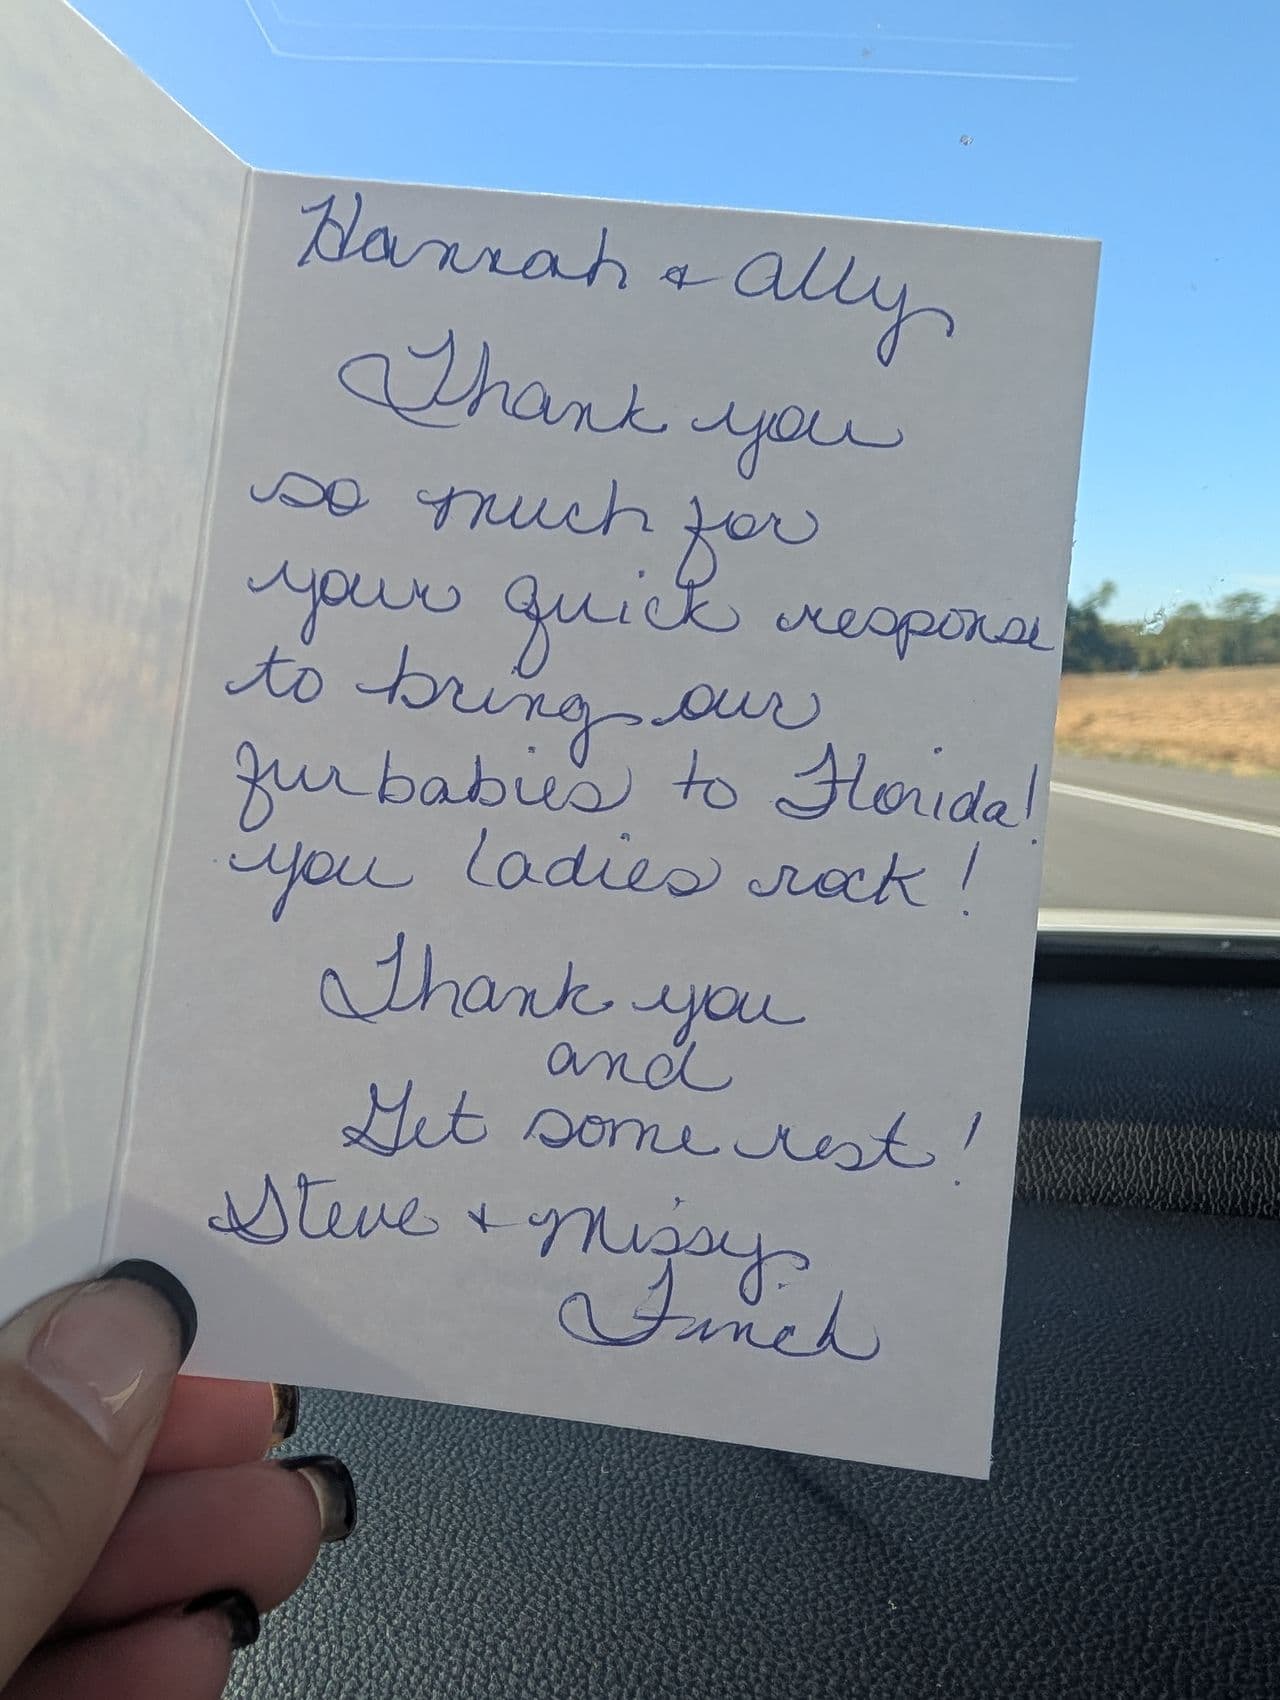 Hannah & Ally
Thank you
so much for
your quick response
to bring our
furbabies to Florida!
you Ladies rock!
Thank you
and
Get some rest!
Steve & Missy
Finch